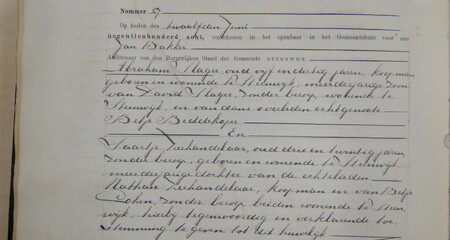 Nommer 29
Op heden den twaalfden Juni
negentienhonderd acht, verschenen in het openbaar in het Gemeentehuis voor ons
Jan Bakker
Ambtenaar van den Burgerlijken Stand der Gemeente STEENWIJK
Abraham Slager, oud vijf en dertig jaren, koopman
geboren en wonende te Steenwijk, meerderjarige zoon
van David Slager, zonder beroep, wonende te
Steenwijk, en van diens overleden echtgenoote
Betje Bedelskoper
En
Saartje Zeehandelaar, oud drie en twintig jaren
zonder beroep, geboren en wonende te Steenwijk,
meerderjarige dochter van de echtelieden
Nathan Zeehandelaar, koopman en van Betje
Cohen, zonder beroep, beiden wonende te Steen
wijk, hierbij tegenwoordig en verklarende toe
stemming te geven tot dit huwelijk